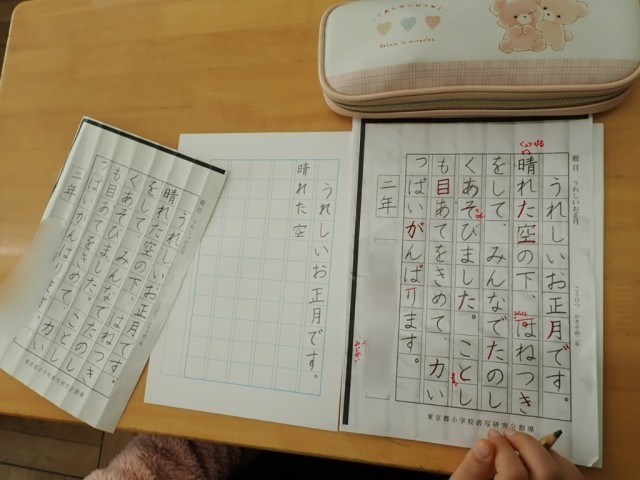 believe in miracles.
題目 うれしいお正月
うれしいお正月です。
晴れた空の下、はねつき
をして、みんなでたのし
くあそびました。ことし
も目あてをきめて、力い
っぱいがんばります。
二年
東京都小学校書写研究会指導
うれしいお正月です。
晴れた空
題目
うれしいお正月です。
晴れた空の下、はねつき
をして、みんなでたのし
くあそびました。ことし
も目あてをきめて、力い
っぱいがんばります。
二年
東京都小学校書写研究会指導